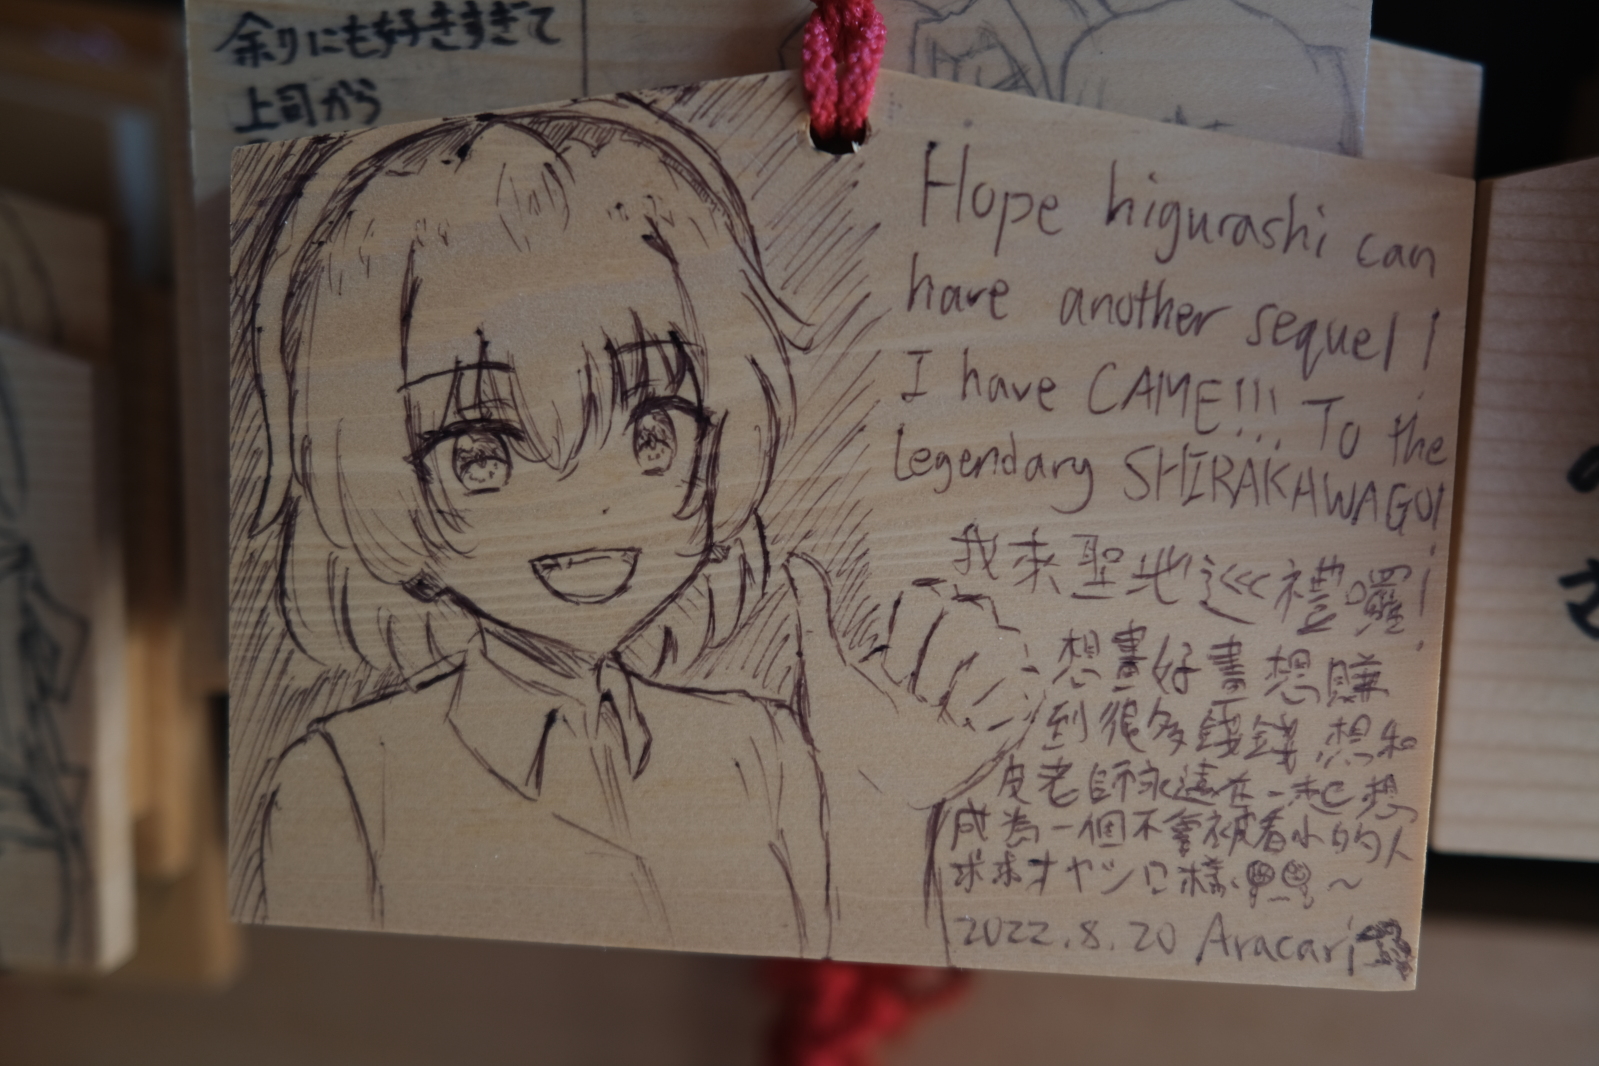 余りにも好きすぎて
上司から
Hope higurashi can
have another sequel!
I have CAME!!! To the
legendary SHIRAKAWAGO!
我来聖地巡禮囉!
想畫好畫想賺
到很多錢錢想和
皮老師永遠在一起想
成為一個不會被看小的人
求求オヤシロ様
2022.8.20 Aracari